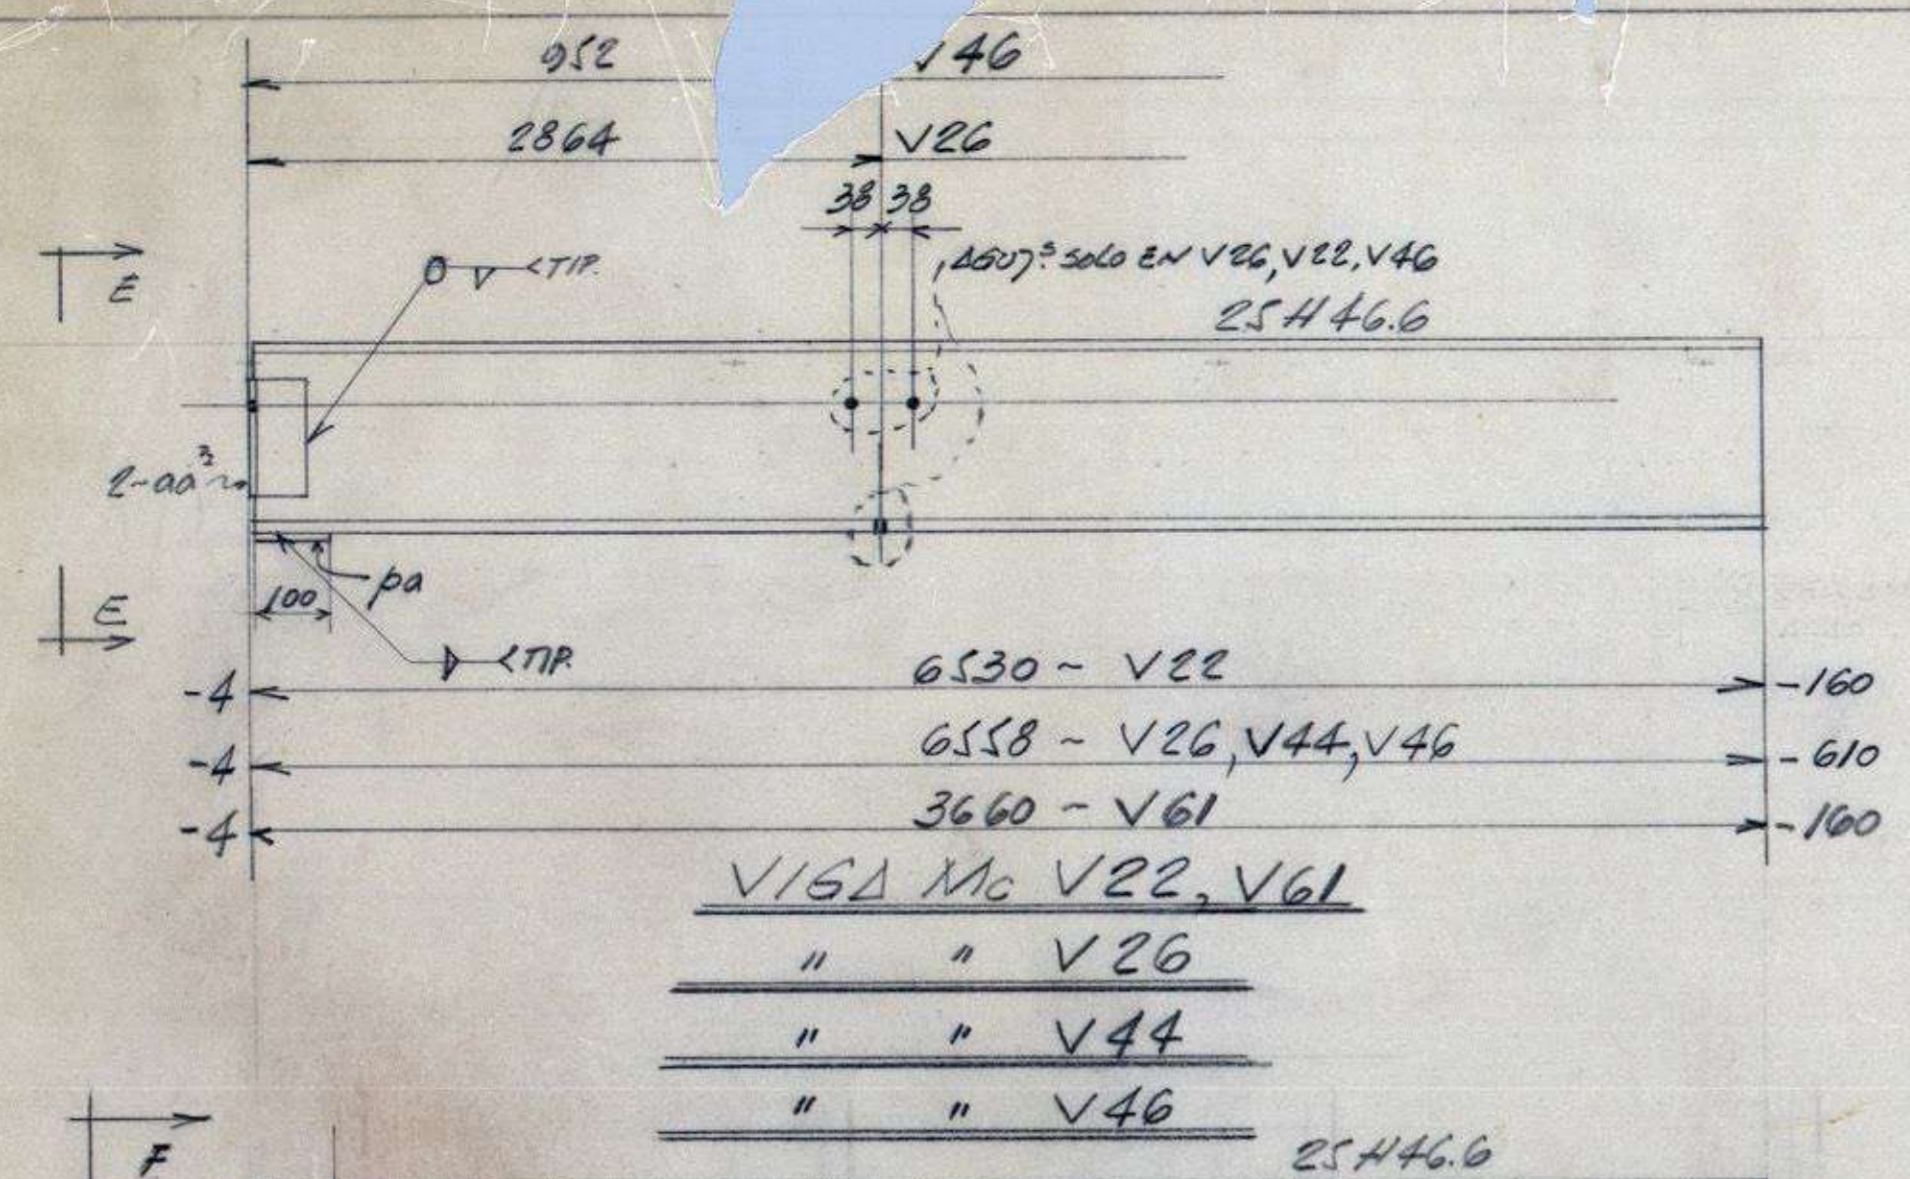 952 V46
2864 V26
38 38
E
TIP.
AGUJS. SOLO EN V26, V22, V46
25H46.6
2-aa
pa
100
E
TIP.
-4 6530 ~ V22 -160
-4 6558 ~ V26, V44, V46 -610
-4 3660 ~ V61 -160
VIGA Mc V22, V61
" " V26
" " V44
" " V46
F
25H46.6